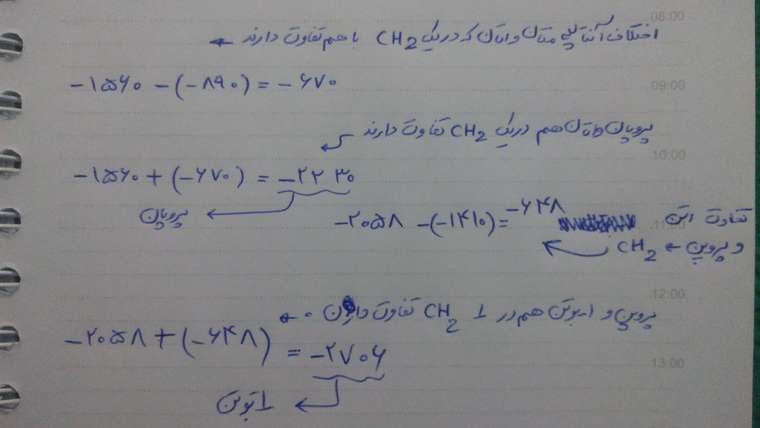 08:00
اختلاف آنتالپی متان و اتان که در یک CH2 با هم تفاوت دارند ←
09:00
-۱۵۶۰ -(-۸۹۰) = -۶۷۰
پروپان و اتان هم در یک CH2 تفاوت دارند
10:00
-۱۵۶۰ + (-۶۷۰) = -۲۲۳۰
پروپان
-۲۰۵۸ -(-۱۴۱۰) = -۶۴۸
تفاوت اتن
و پروپن ← CH2
12:00
پروپن و ۱-بوتن هم در 1 CH2 تفاوت دارن ←
-۲۰۵۸ + (-۶۴۸) = -۲۷۰۶
13:00
۱-بوتن